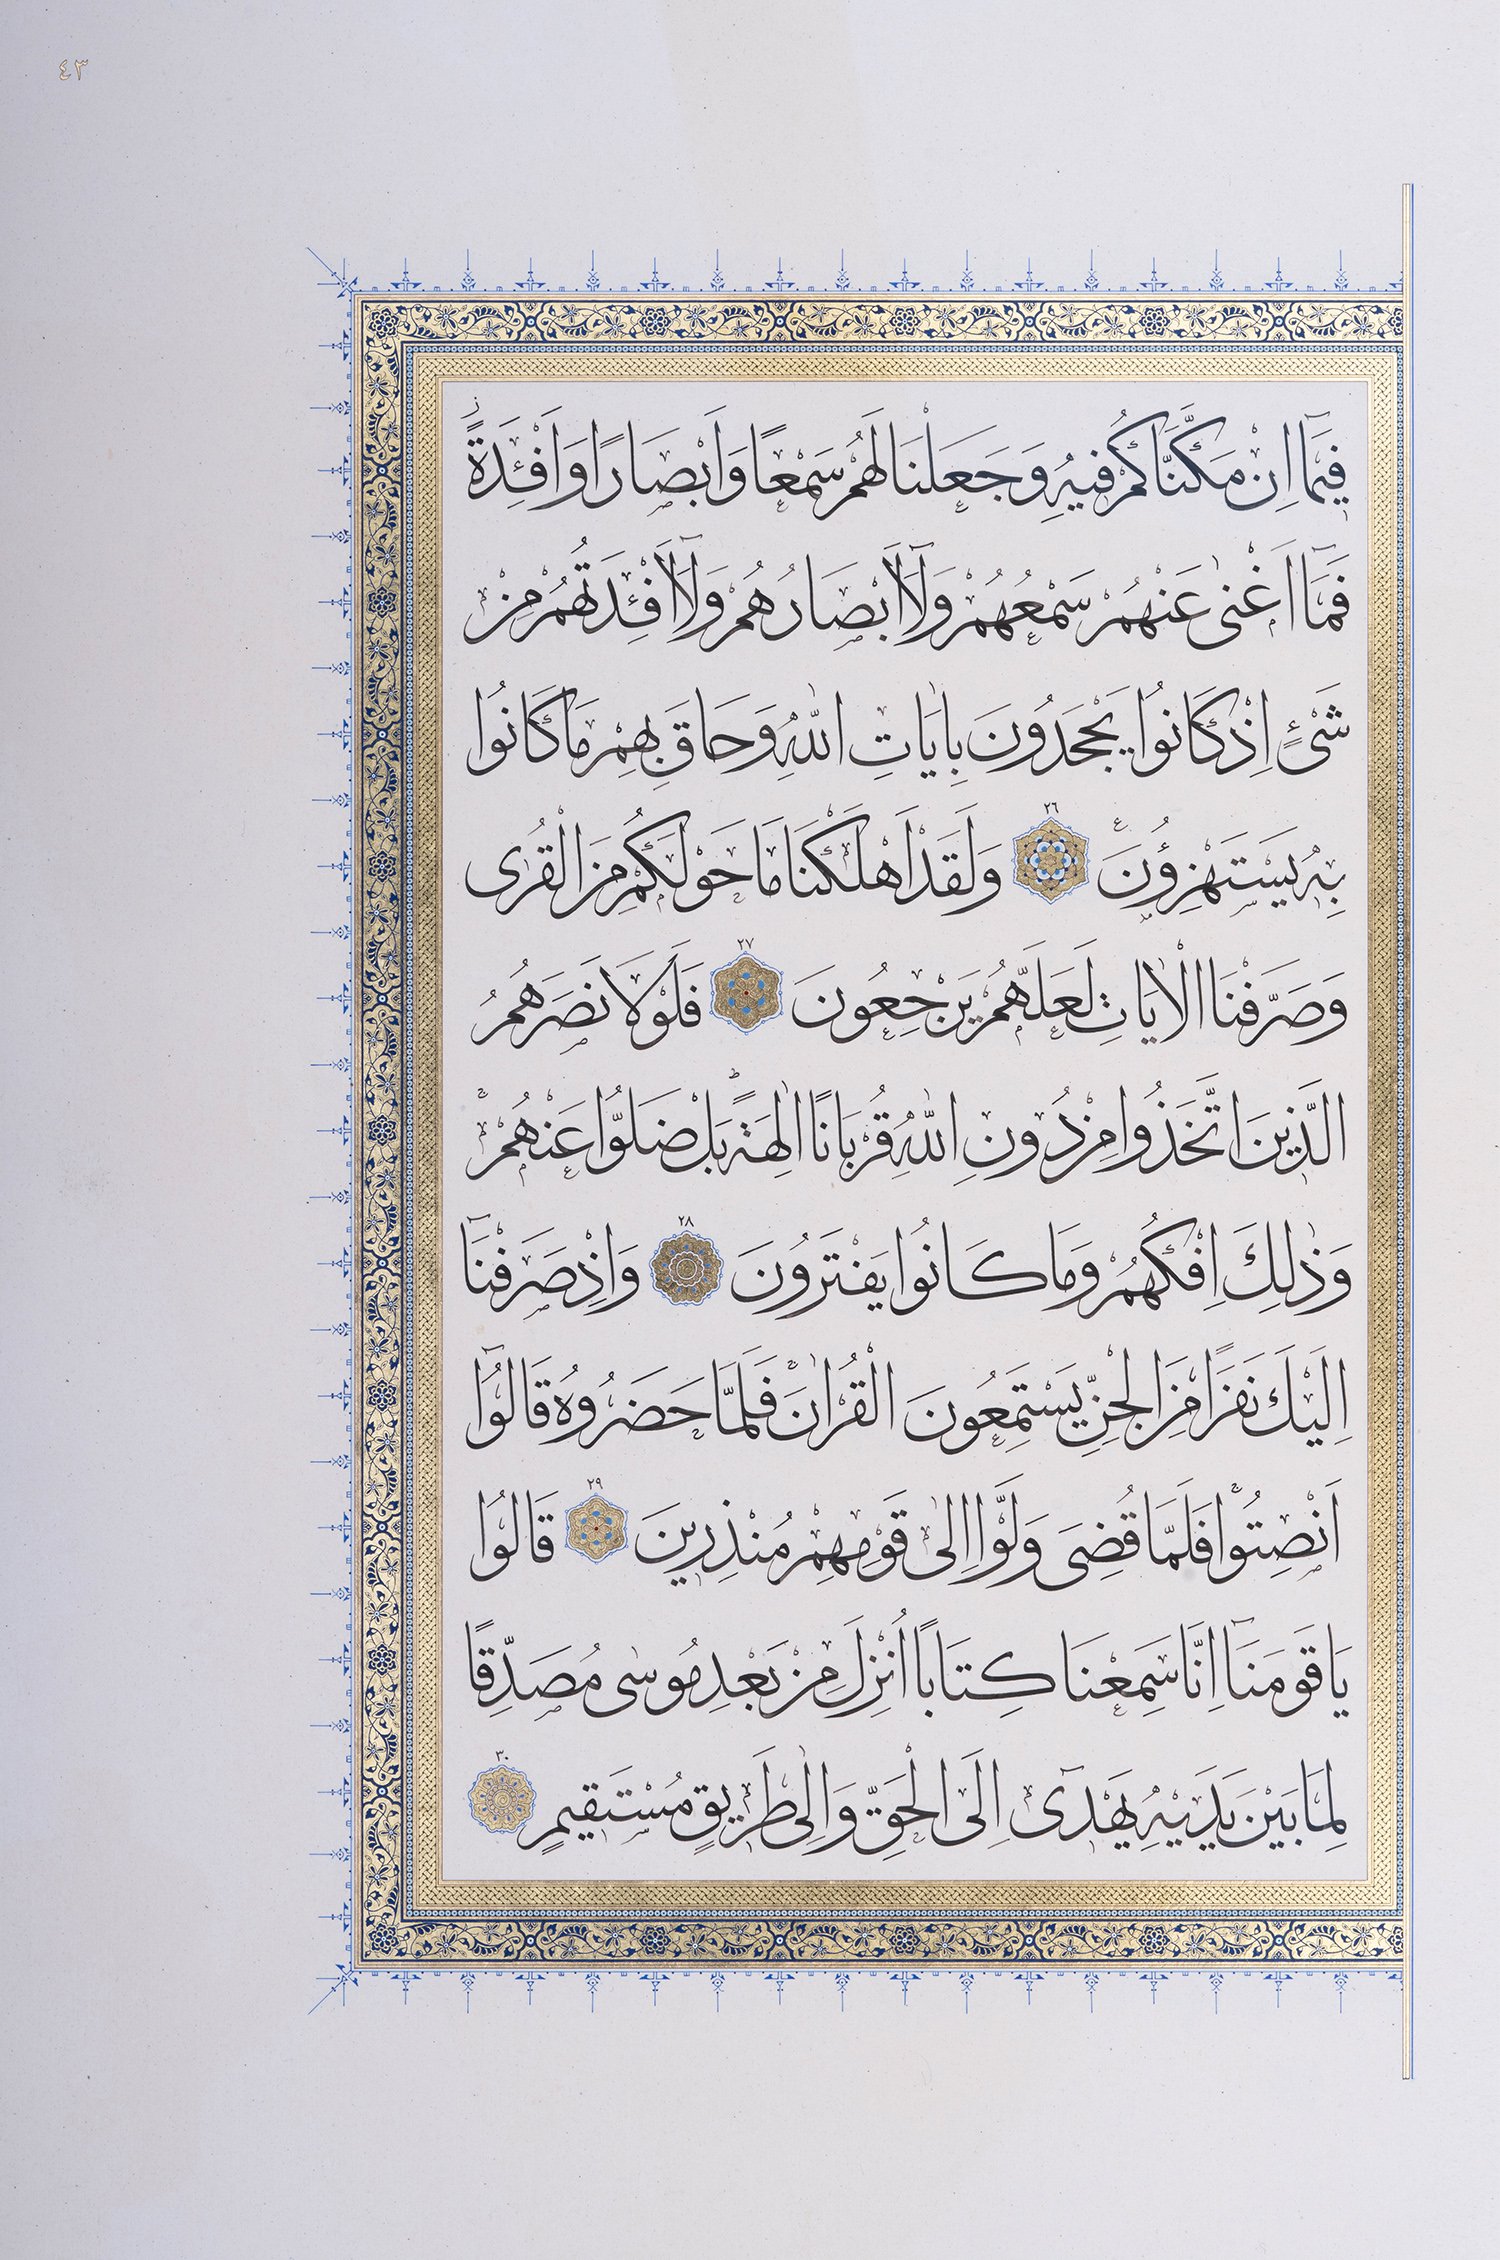 ٤٣
فِيمَٓا اِنْ مَكَّنَّاكُمْ فِيهِ وَجَعَلْنَا لَهُمْ سَمْعًا وَاَبْصَارًا وَاَفْـِٔدَةًۘ
فَمَٓا اَغْنٰى عَنْهُمْ سَمْعُهُمْ وَلَٓا اَبْصَارُهُمْ وَلَٓا اَفْـِٔدَتُهُمْ مِنْ
شَىْءٍ اِذْ كَانُوا يَجْحَدُونَ بِاٰيَاتِ اللّٰهِ وَحَاقَ بِهِمْ مَا كَانُوا
بِهِ يَسْتَهْزِؤُنَ ٢٦ وَلَقَدْ اَهْلَكْنَا مَا حَوْلَكُمْ مِنَ الْقُرٰى
وَصَرَّفْنَا الْاٰيَاتِ لَعَلَّهُمْ يَرْجِعُونَ ٢٧ فَلَوْلَا نَصَرَهُمُ
الَّذِينَ اتَّخَذُوا مِنْ دُونِ اللّٰهِ قُرْبَانًا اٰلِهَةًۜ بَلْ ضَلُّوا عَنْهُمْۚ
وَذٰلِكَ اِفْكُهُمْ وَمَا كَانُوا يَفْتَرُونَ ٢٨ وَاِذْ صَرَفْنَٓا
اِلَيْكَ نَفَرًا مِنَ الْجِنِّ يَسْتَمِعُونَ الْقُرْاٰنَۚ فَلَمَّا حَضَرُوهُ قَالُٓوا
اَنْصِتُواۚ فَلَمَّا قُضِىَ وَلَّوْا اِلٰى قَوْمِهِمْ مُنْذِرِينَ ٢٩ قَالُوا
يَا قَوْمَنَٓا اِنَّا سَمِعْنَا كِتَابًا اُنْزِلَ مِنْ بَعْدِ مُوسٰى مُصَدِّقًا
لِمَا بَيْنَ يَدَيْهِ يَهْدِٓى اِلَى الْحَقِّ وَاِلٰى طَرِيقٍ مُسْتَقِيمٍ ٣٠